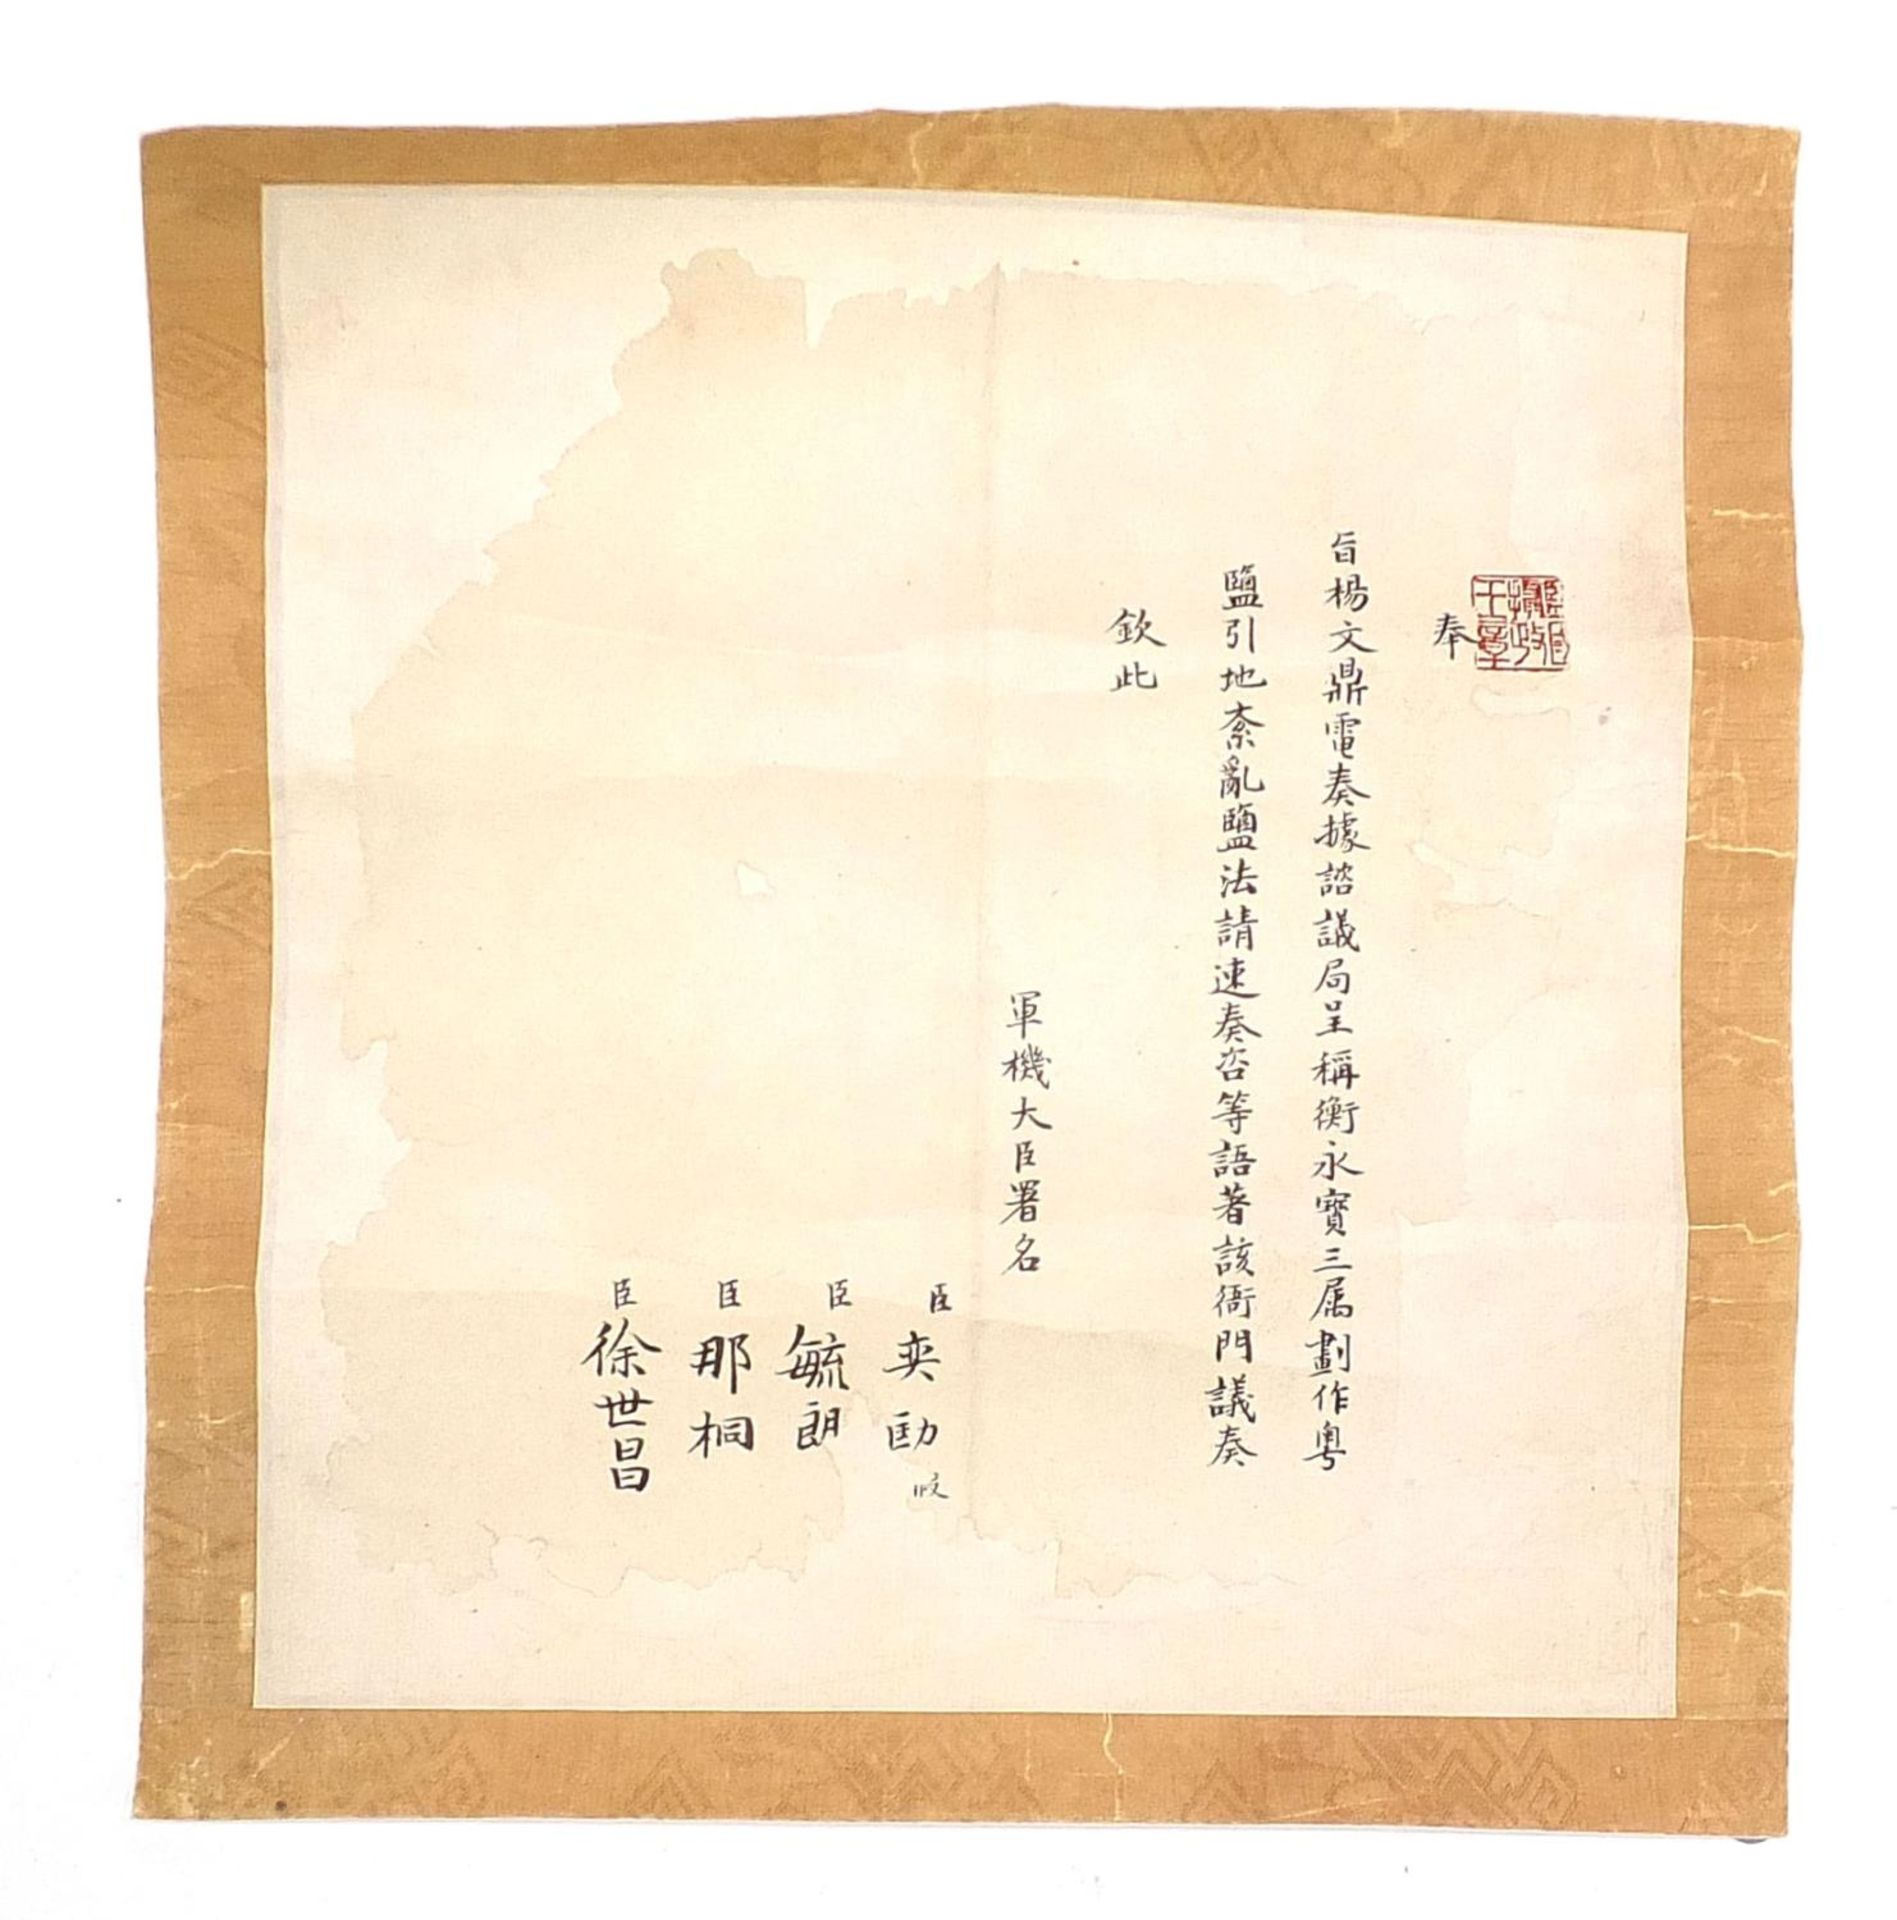 監國攝政王章
奉
旨楊文鼎電奏據諮議局呈稱衡永寶三属劃作粵
鹽引地紊亂鹽法請速奏咨等語著該衙門議奏
欽此
軍機大臣署名
臣奕劻假
臣毓朗
臣那桐
臣徐世昌